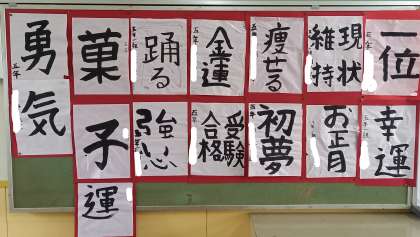 一位
現状
維持
痩せる
金運
踊る
菓子
勇気
五年
幸運
お正月
初夢
受験
合格
五年
強
運